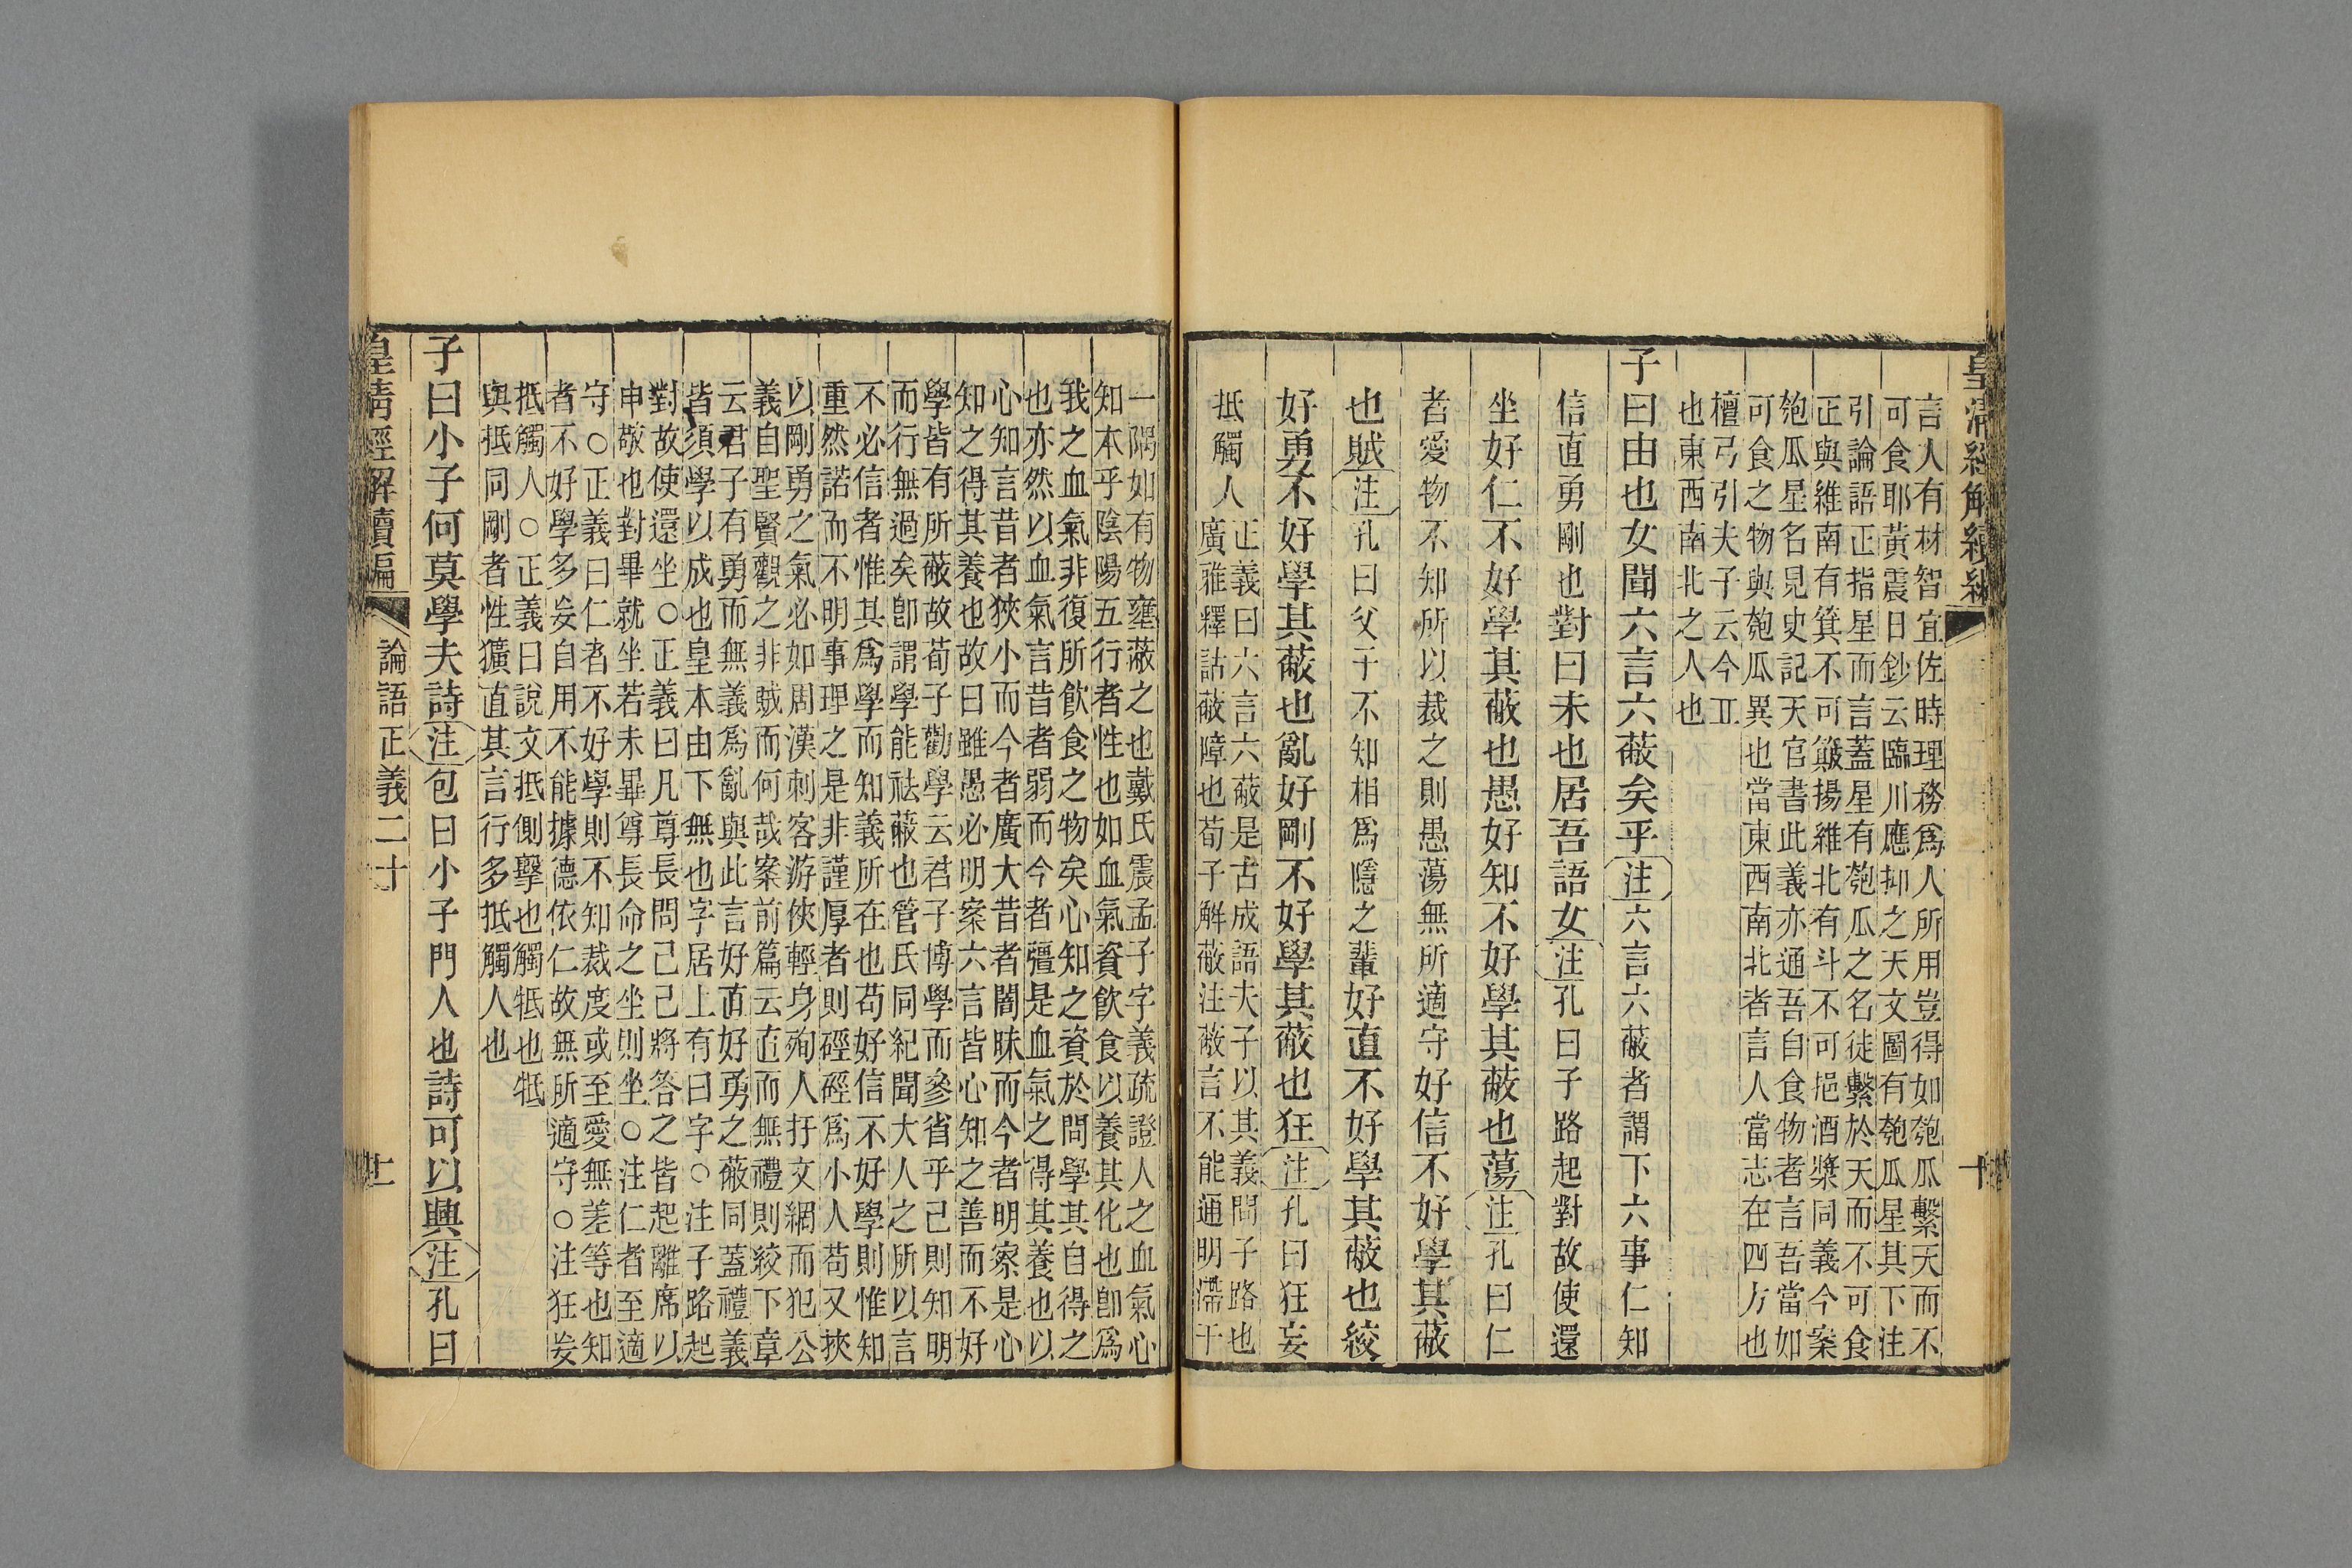 皇清經解續編
十
言人有材智宜佐時理務爲人所用豈得如匏瓜繫天而不
可食耶黃震日鈔云臨川應抑之天文圖有匏瓜星其下注
引論語正指星而言蓋星有匏瓜之名徒繫於天而不可食
正與維南有箕不可簸揚維北有斗不可挹酒漿同義今案
匏瓜星名見史記天官書此義亦通吾自食物者言吾當如
可食之物與匏瓜異也當東西南北者言人當志在四方也
檀弓引夫子云今丘
也東西南北之人也
子曰由也女聞六言六蔽矣乎注六言六蔽者謂下六事仁知
信直勇剛也對曰未也居吾語女注孔曰子路起對故使還
坐好仁不好學其蔽也愚好知不好學其蔽也蕩注孔曰仁
者愛物不知所以裁之則愚蕩無所適守好信不好學其蔽
也賊注孔曰父子不知相爲隱之輩好直不好學其蔽也絞
好勇不好學其蔽也亂好剛不好學其蔽也狂注孔曰狂妄
抵觸人
正義曰六言六蔽是古成語夫子以其義問子路也
廣雅釋詁蔽障也荀子解蔽注蔽言不能通明滯于
一隅如有物壅蔽之也戴氏震孟子字義疏證人之血氣心
知本乎陰陽五行者性也如血氣資飲食以養其化也卽爲
我之血氣非復所飲食之物矣心知之資於問學其自得之
也亦然以血氣言昔者弱而今者彊是血氣之得其養也以
心知言昔者狹小而今者廣大昔者闇昧而今者明察是心
知之得其養也故曰雖愚必明案六言皆心知之善而不好
學皆有所蔽故荀子勸學云君子博學而參省乎己則知明
而行無過矣卽謂學能祛蔽也管氏同紀聞大人之所以言
不必信者惟其爲學而知義所在也苟好信不好學則惟知
重然諾而不明事理之是非謹厚者則硜硜爲小人苟又挾
以剛勇之氣必如周漢刺客游俠輕身殉人扞文網而犯公
義自聖賢觀之非賊而何哉案前篇云直而無禮則絞下章
云君子有勇而無義爲亂與此言好直好勇之蔽同蓋禮義
皆須學以成也皇本由下無也字居上有曰字○注子路起
對故使還坐○正義曰凡尊長問己己將答之皆起離席以
申敬也對畢就坐若未畢尊長命之坐則坐○注仁者至適
守○正義曰仁者不好學則不知裁度或至愛無差等也知
者不好學多妄自用不能據德依仁故無所適守○注狂妄
抵觸人○正義曰說文抵側擊也觸牴也牴
與抵同剛者性獷直其言行多抵觸人也
子曰小子何莫學夫詩注包曰小子門人也詩可以興注孔曰
皇清經解續編
論語正義二十
十一